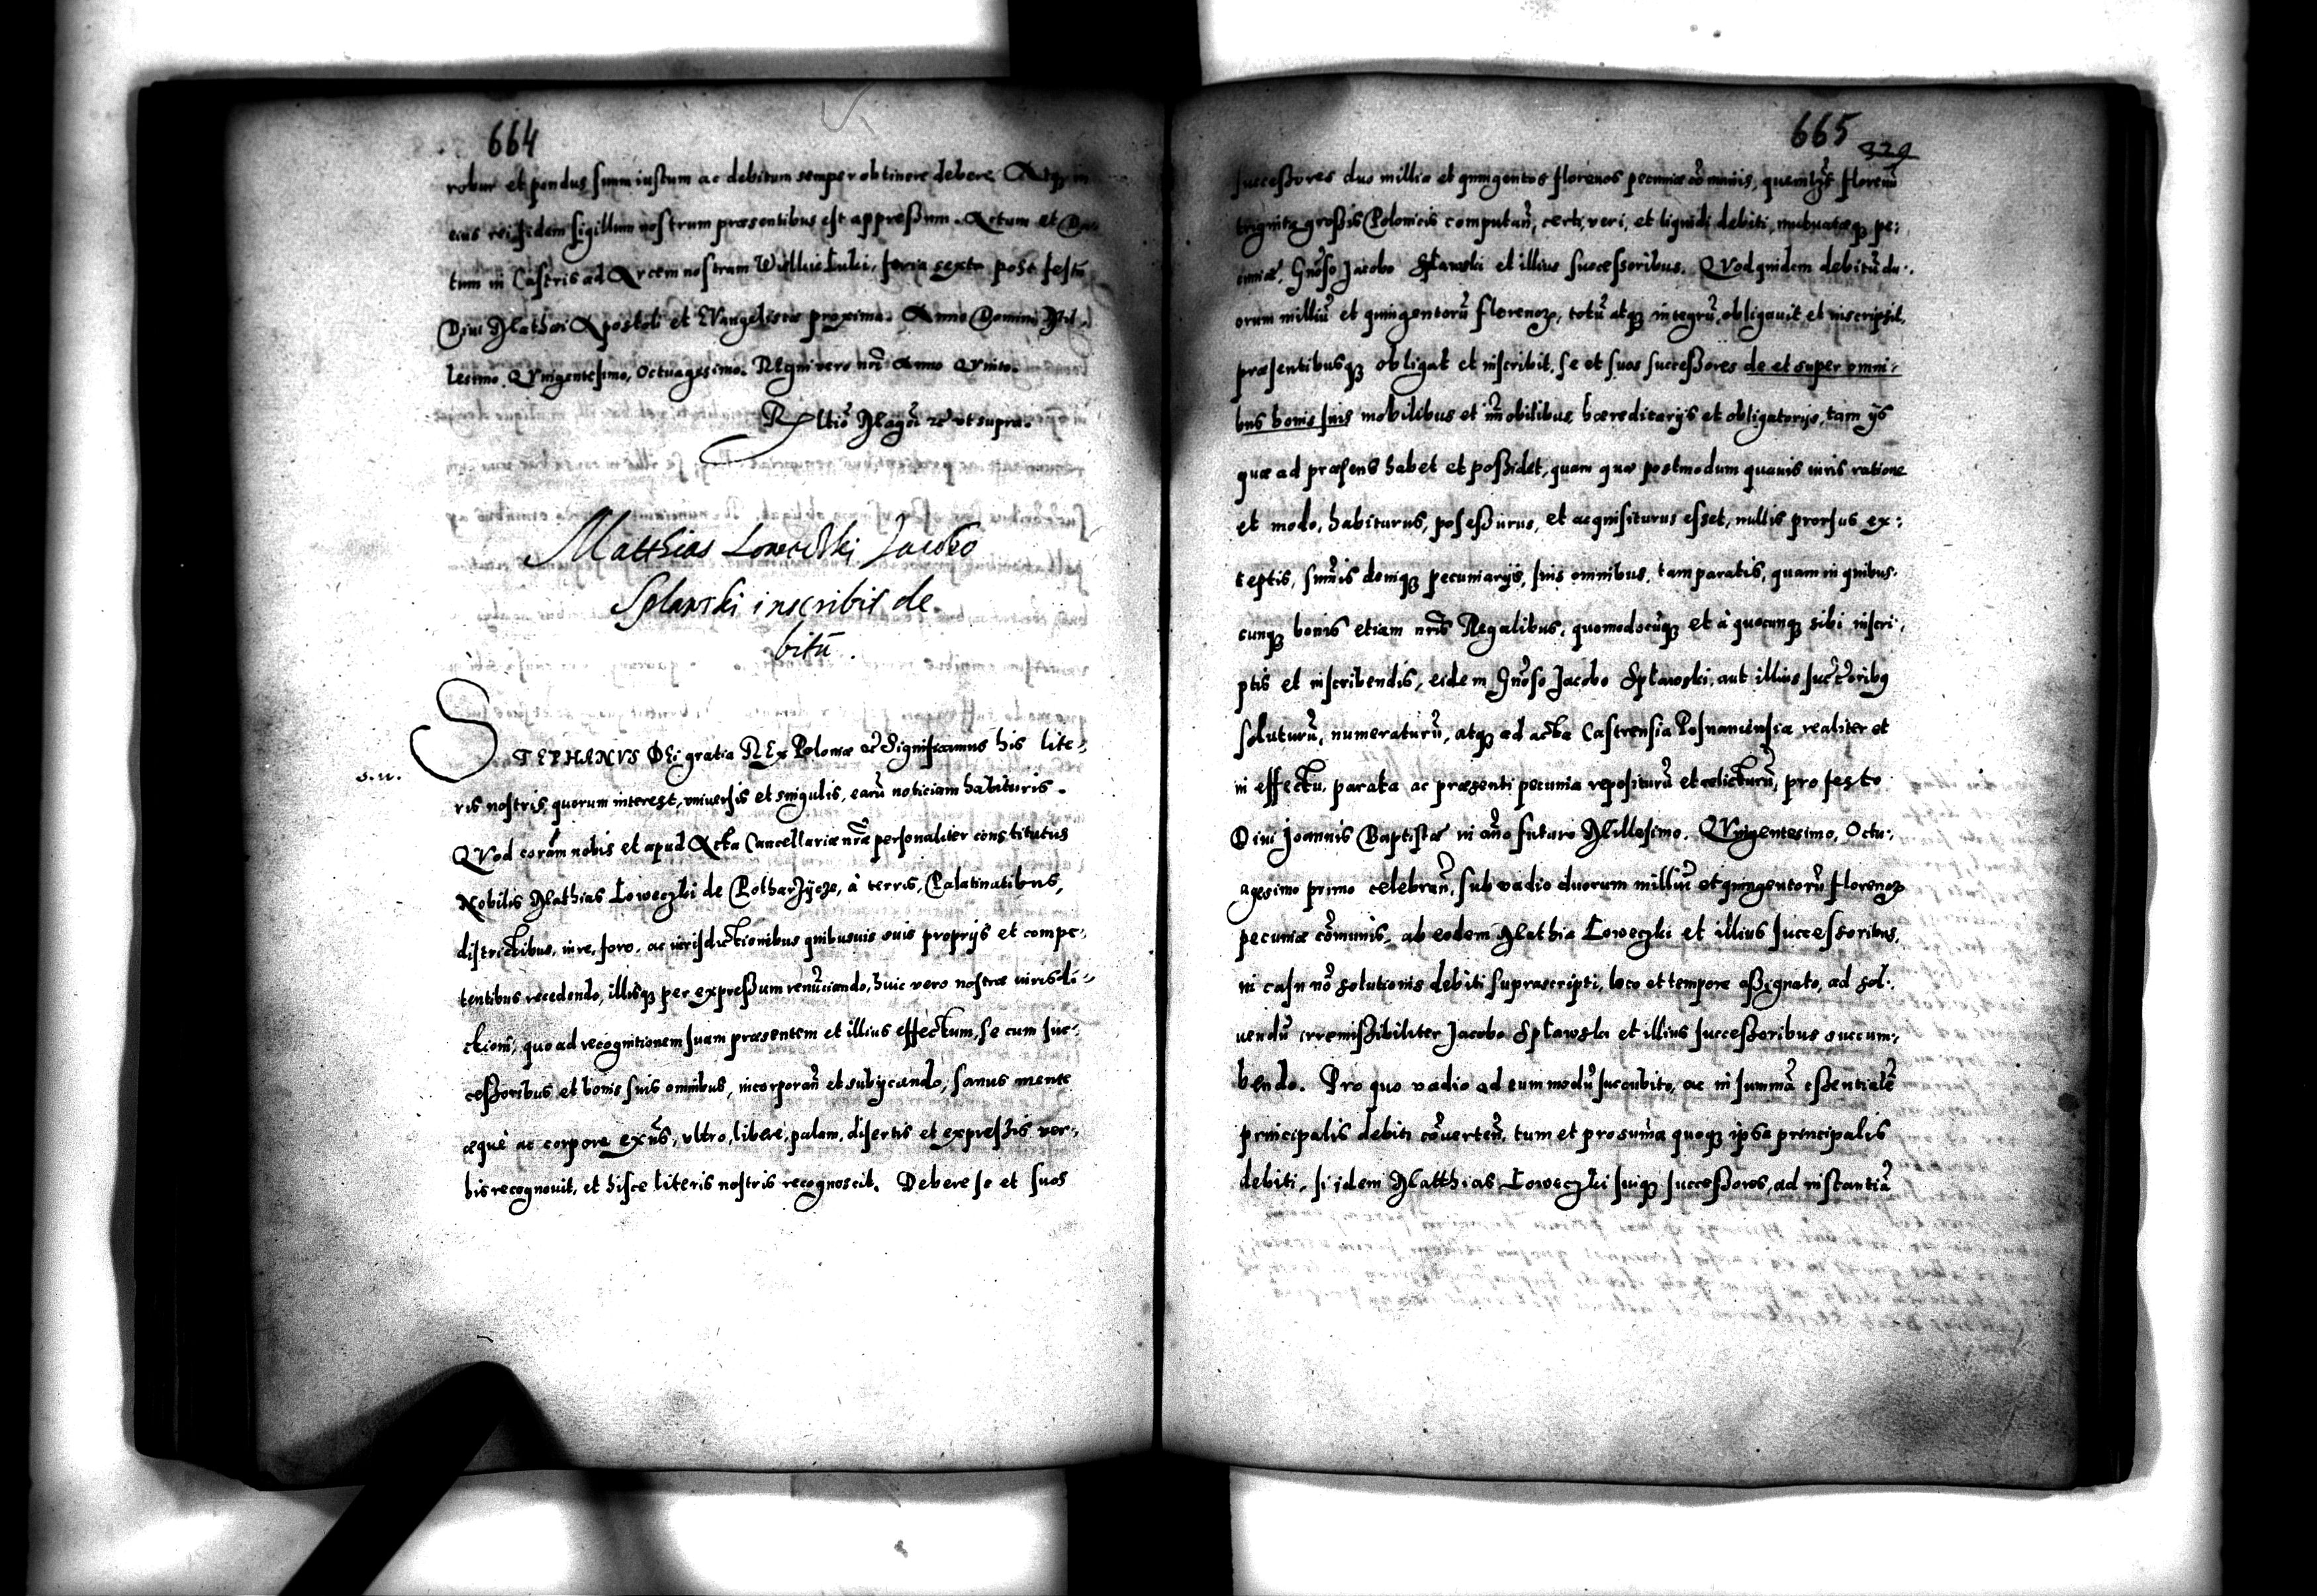 664
robur et pondus suum iustum ac debitum semper obtinere debere. Atq; in
eius rei fidem sigillum nostrum præsentibus est appressum. Actum et Da
tum in Castris ad Arcem nostram Wielkie Luki, feria sexta post festũ
Diui Mathæi Apostoli et EVangelistæ proxima. Anno Domini Mil.
lesimo. QVingentesimo, Octuagesimo. REgni vero nr̃i Anno QVinto.
Rltio Magci zc vt supra.
Matthias Loweczki Jacobo
Splawski inscribit de.
bitũ.
s.n.
STEPHANVS DEi gratia REx Poloniæ ec̃ Significamus his lite,
ris nostris, quorum interest, vniuersis et singulis, earũ noticiam habituris.
QVod coram nobis et apud Acta Cancellariæ nr̃æ personaliter constitutus
Nobilis Mathias Łoweczki de à terris, Palatinatibus,
districtibus, iure, foro, ac iurisdictionibus quibusuis suis proprijs et compe,
tentibus recedendo, illisq; per expressum renũciando, huic vero nostræ iurisdi,
ctioni, quo ad recognitionem suam præsentem et illius effectum, se cum suc,
cessoribus et bonis suis omnibus, incorporan̄ et subijciendo, sanus mente
æquè ac corpore exñs, vltro, libere, palam, disertis et expressis ver,
bis recognouit, et hisce literis nostris recognoscit. Debere se et suos
665
329
successores duo millia et quingentos florenos pecuniæ cõmunis, quemlib; florenũ
triginta grossis Polonicis computan̄, certi, veri, et liquidi debiti, mutuatæq; pe,
cuniæ, Gnõso Jacobo Spławski et illius successoribus. QVod quidem debitũ du.
orum milliũ et quingentorũ florenoꝝ, totũ atq; integrũ, obligauit et inscripsit,
præsentibusq; obligat et inscribit, se et suos successores de et super omni,
bus bonis suis mobilibus et im̃obilibus, hæreditarijs et obligatorijs, tam ijs
quæ ad præsens habet et possidet, quam quæ postmodum quauis iuris ratione
et modo, habiturus, possessurus, et acquisiturus esset, nullis prorsus ex,
ceptis, sum̃is deniq; pecuniarijs, suis omnibus, tam paratis, quam in quibus.
cunq; bonis etiam nr̃is Regalibus, quomodocũq; et à quocunq; sibi inscri,
ptis et inscribendis, eidem Gnõso Jacobo Spławski, aut illius succ̃oribus
soluturũ, numeraturũ, atq; ad acta Castrensia Posnaniensia realiter et
in effectu, parata ac præsenti pecunia repositurũ et relicturũ, pro festo
Diui Joannis Baptistæ in añno futuro Millesimo. QVingentesimo, Octu,
agesimo primo celebran̄, sub vadio duorum milliũ et quingentorũ florenoꝝ
pecuniæ cõmunis, ab eodem Mathia Łoweczki et illius successoribus,
in casu nõ solutionis debiti suprascripti, loco et tempore assignato, ad sol.
uendũ irremissibiliter Jacobo Spławski et illius successoribus succum,
bendo. Pro quo vadio ad eum modũ succubito, ac in summã essentialẽ
principalis debiti cõuerten̄, tum et pro sum̃a quoq; ipsa principalis
debiti, si idem Matthias Łoweczki suiq; successores, ad instantiã